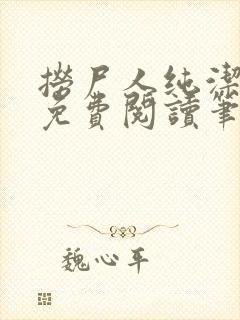 撈尸人純潔
免費閱讀筆
魏心平